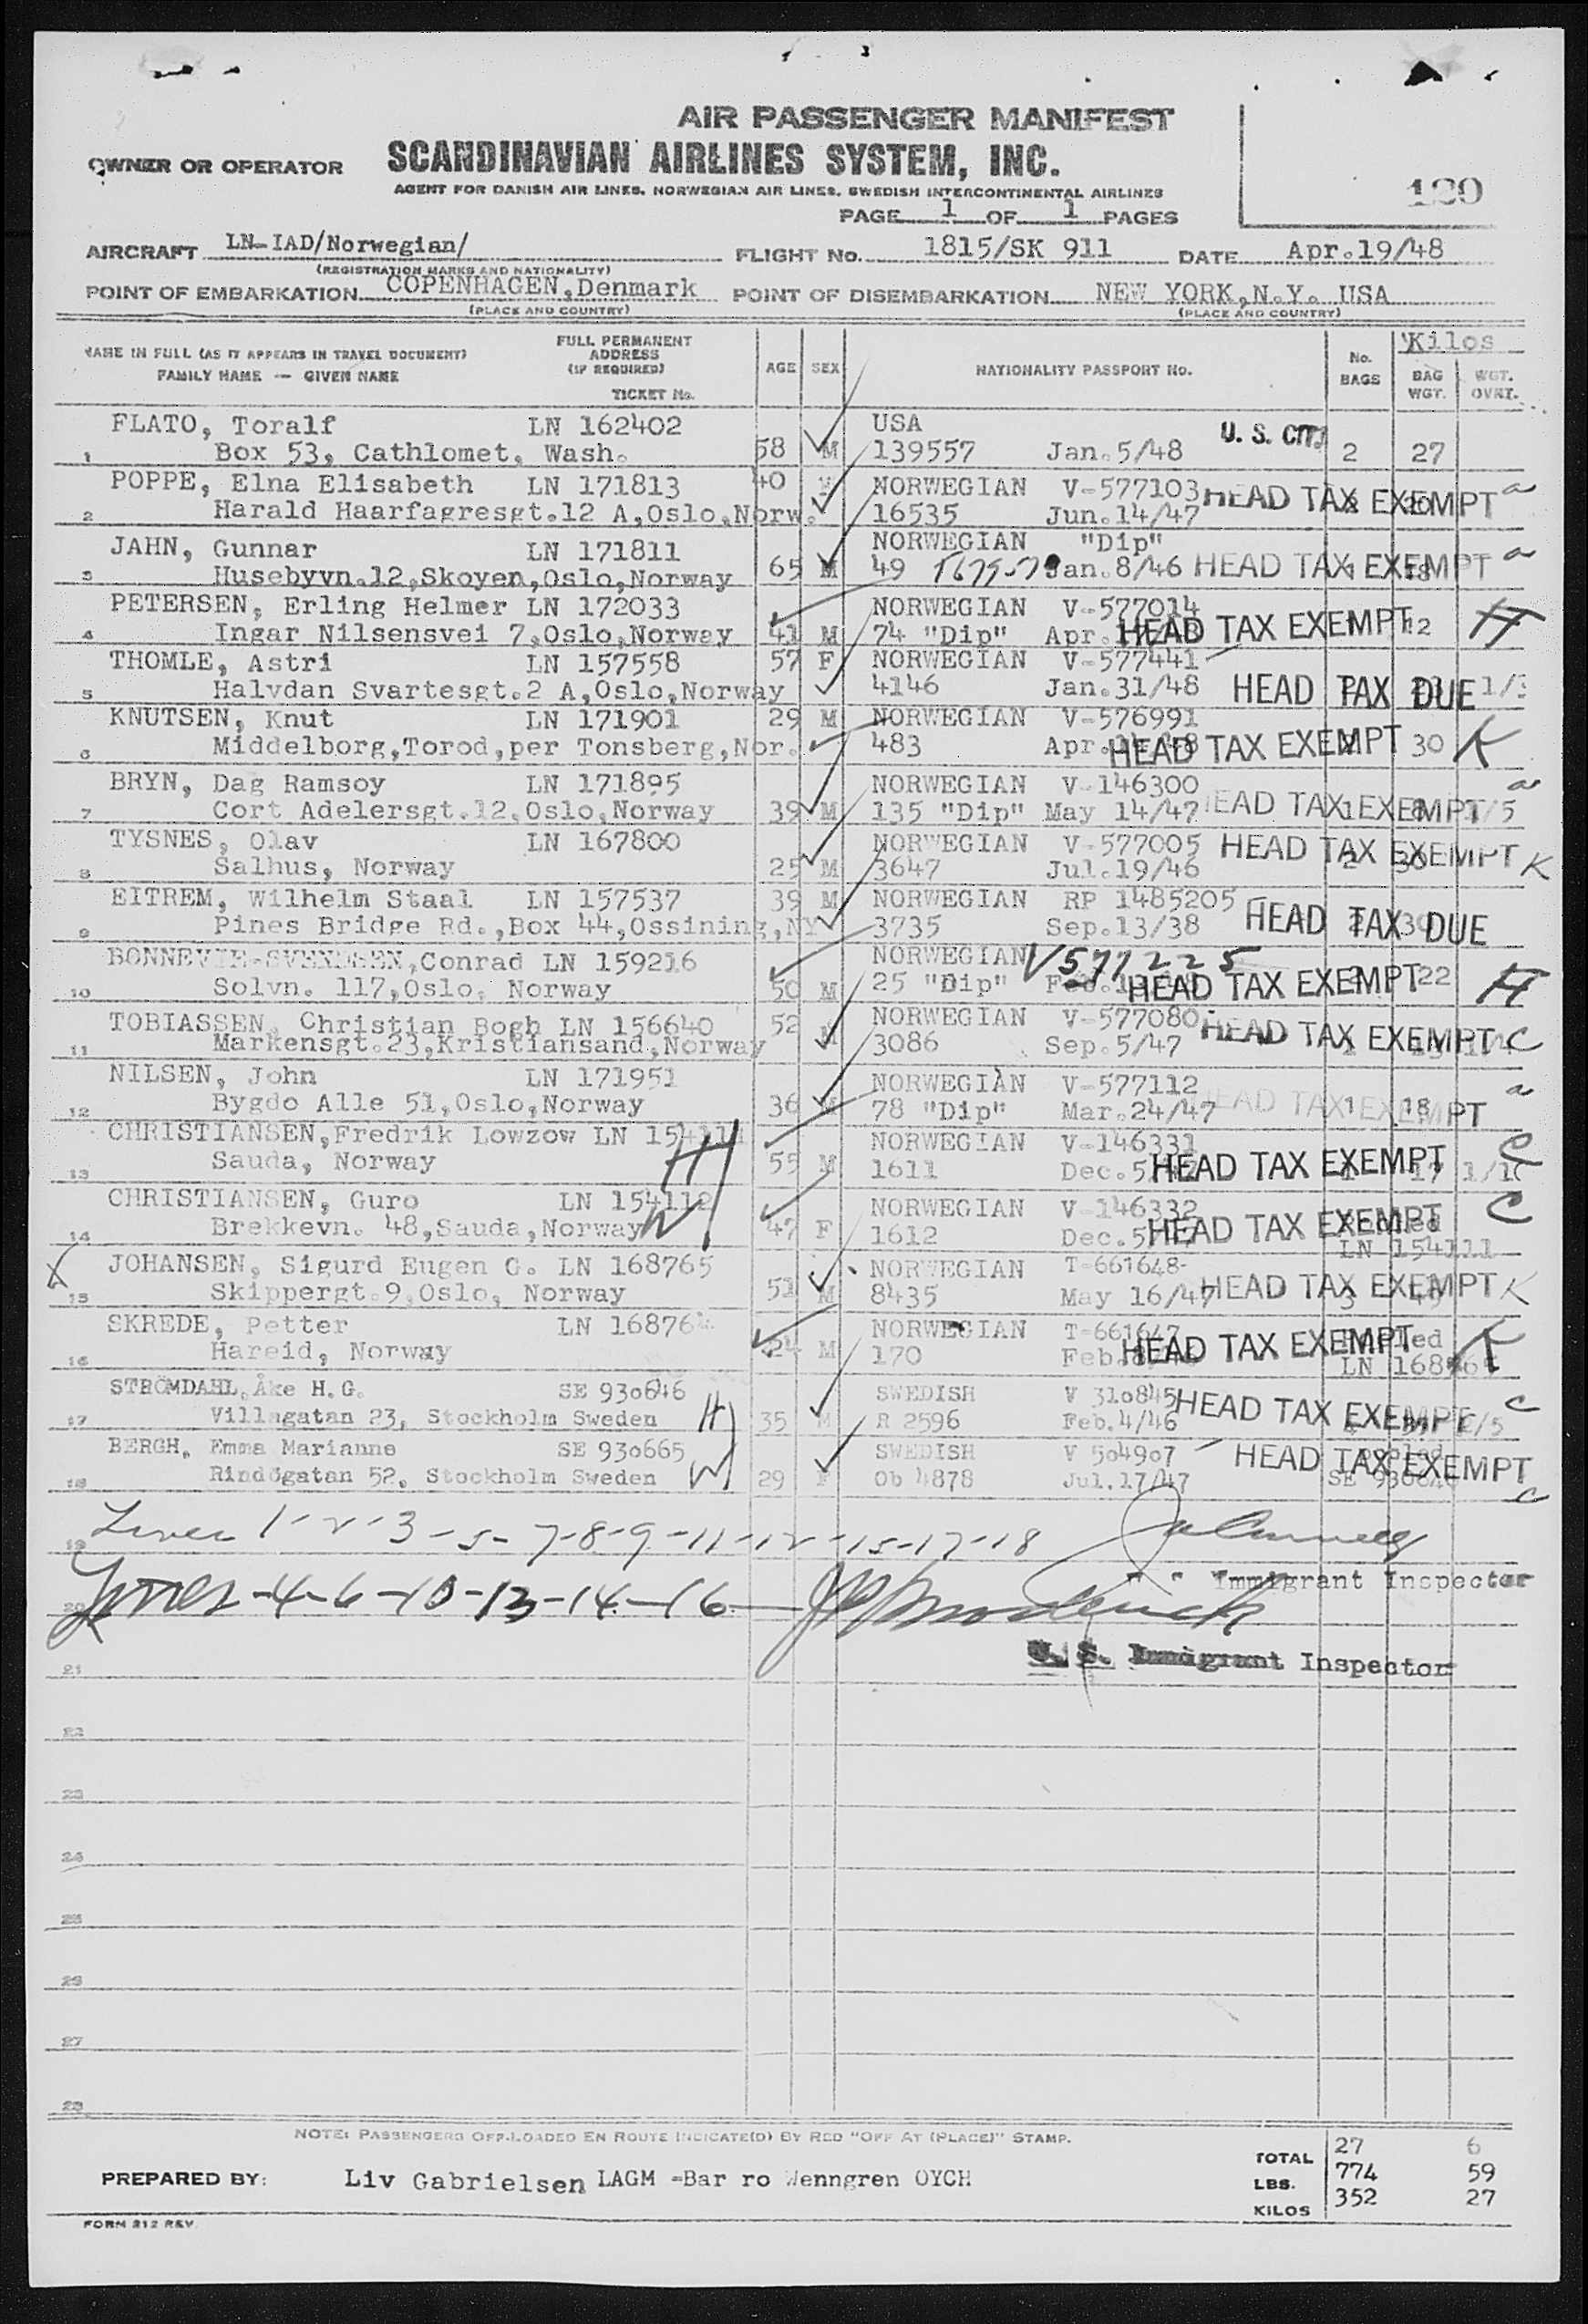 AIR PASSENGER MANIFEST
OWNER OR OPERATOR SCANDINAVIAN AIRLINES SYSTEM, INC.
AGENT FOR DANISH AIR LINES, NORWEGIAN AIR LINES, SWEDISH INTERCONTINENTAL AIRLINES
120
PAGE 1 OF 1 PAGES
AIRCRAFT LN-IAD/Norwegian/ FLIGHT No. 1815/SK 911 DATE Apr.19/48
(REGISTRATION MARKS AND NATIONALITY)
POINT OF EMBARKATION COPENHAGEN,Denmark POINT OF DISEMBARKATION NEW YORK,N.Y. USA
(PLACE AND COUNTRY) (PLACE AND COUNTRY)
NAME IN FULL (AS IT APPEARS IN TRAVEL DOCUMENT)
FAMILY NAME — GIVEN NAME
FULL PERMANENT
ADDRESS
(IF REQUIRED)
TICKET No.
AGE SEX NATIONALITY PASSPORT No. No. BAGS Kilos BAG WGT. WGT. OVRT.
FLATO, Toralf LN 162402 USA
1 Box 53, Cathlomet, Wash. 58 M 139557 Jan.5/48 U. S. CIT 2 27
POPPE, Elna Elisabeth LN 171813 40 NORWEGIAN V-577103 HEAD TAX EXEMPT a
2 Harald Haarfagresgt.12 A,Oslo,Norw. 16535 Jun.14/47
JAHN, Gunnar LN 171811 NORWEGIAN "Dip"
3 Husebyvn.12,Skoyen,Oslo,Norway 65 M 49 Jan.8/46 HEAD TAX EXEMPT a
PETERSEN, Erling Helmer LN 172033 NORWEGIAN V-577014
4 Ingar Nilsensvei 7,Oslo,Norway 41 M 74 "Dip" Apr. HEAD TAX EXEMPT 12 H
THOMLE, Astri LN 157558 57 F NORWEGIAN V-577441
5 Halvdan Svartesgt.2 A,Oslo,Norway 4146 Jan.31/48 HEAD TAX DUE
KNUTSEN, Knut LN 171901 29 M NORWEGIAN V-576991
6 Middelborg,Torod,per Tonsberg,Nor. 483 Apr. HEAD TAX EXEMPT 30 K
BRYN, Dag Ramsoy LN 171895 NORWEGIAN V-146300 a
7 Cort Adelersgt.12,Oslo,Norway 39 M 135 "Dip" May 14/47 HEAD TAX EXEMPT
TYSNES, Olav LN 167800 NORWEGIAN V-577005 HEAD TAX EXEMPT K
8 Salhus, Norway 25 M 3647 Jul.19/46 2 30
EITREM, Wilhelm Staal LN 157537 39 M NORWEGIAN RP 1485205
9 Pines Bridge Rd.,Box 44,Ossining,NY 3735 Sep.13/38 HEAD TAX DUE
BONNEVIE-SVENDSEN,Conrad LN 159216 NORWEGIAN V577225
10 Solvn. 117,Oslo, Norway 50 M 25 "Dip" HEAD TAX EXEMPT 22 H
TOBIASSEN, Christian Bogh LN 156640 52 NORWEGIAN V-577080 HEAD TAX EXEMPT C
11 Markensgt.23,Kristiansand,Norway 3086 Sep.5/47
NILSEN, John LN 171951 NORWEGIAN V-577112 a
12 Bygdo Alle 51,Oslo,Norway 36 M 78 "Dip" Mar.24/47 HEAD TAX EXEMPT 1 18
CHRISTIANSEN,Fredrik Lowzow LN 154111 NORWEGIAN V-146331 C
13 Sauda, Norway 55 M 1611 Dec.5 HEAD TAX EXEMPT 17
CHRISTIANSEN, Guro LN 154112 NORWEGIAN V-146332 C
14 Brekkevn. 48,Sauda,Norway 47 F 1612 Dec.5 HEAD TAX EXEMPT
LN 154111
JOHANSEN, Sigurd Eugen G. LN 168765 NORWEGIAN T-661648
15 Skippergt.9,Oslo, Norway 51 M 8435 May 16/47 HEAD TAX EXEMPT K
SKREDE, Petter NORWEGIAN T-661647
16 Hareid, Norway 24 M 170 Feb. HEAD TAX EXEMPT K
STRÖMDAHL,Åke H.G. SE 930646 SWEDISH V 310845 HEAD TAX EXEMPT C
17 Villagatan 23, Stockholm Sweden H 35 M R 2596 Feb.4/46
BERGH, Emma Marianne SE 930665 SWEDISH V 504907 HEAD TAX EXEMPT
18 Rindögatan 52, Stockholm Sweden W 29 F Ob 4878 Jul.17/47 C
19 Lines 1-2-3-5-7-8-9-11-12-15-17-18
Immigrant Inspector
20 Lines -4-6-10-13-14-16
U. S. Immigrant Inspector
21
22
23
24
25
26
27
28
NOTE: PASSENGERS OFF-LOADED EN ROUTE INDICATE(D) BY RED "OFF AT (PLACE)" STAMP.
TOTAL 27 6
PREPARED BY: Liv Gabrielsen LAGM -Bar ro Wenngren OYCH
LBS. 774 59
KILOS 352 27
FORM 212 REV.